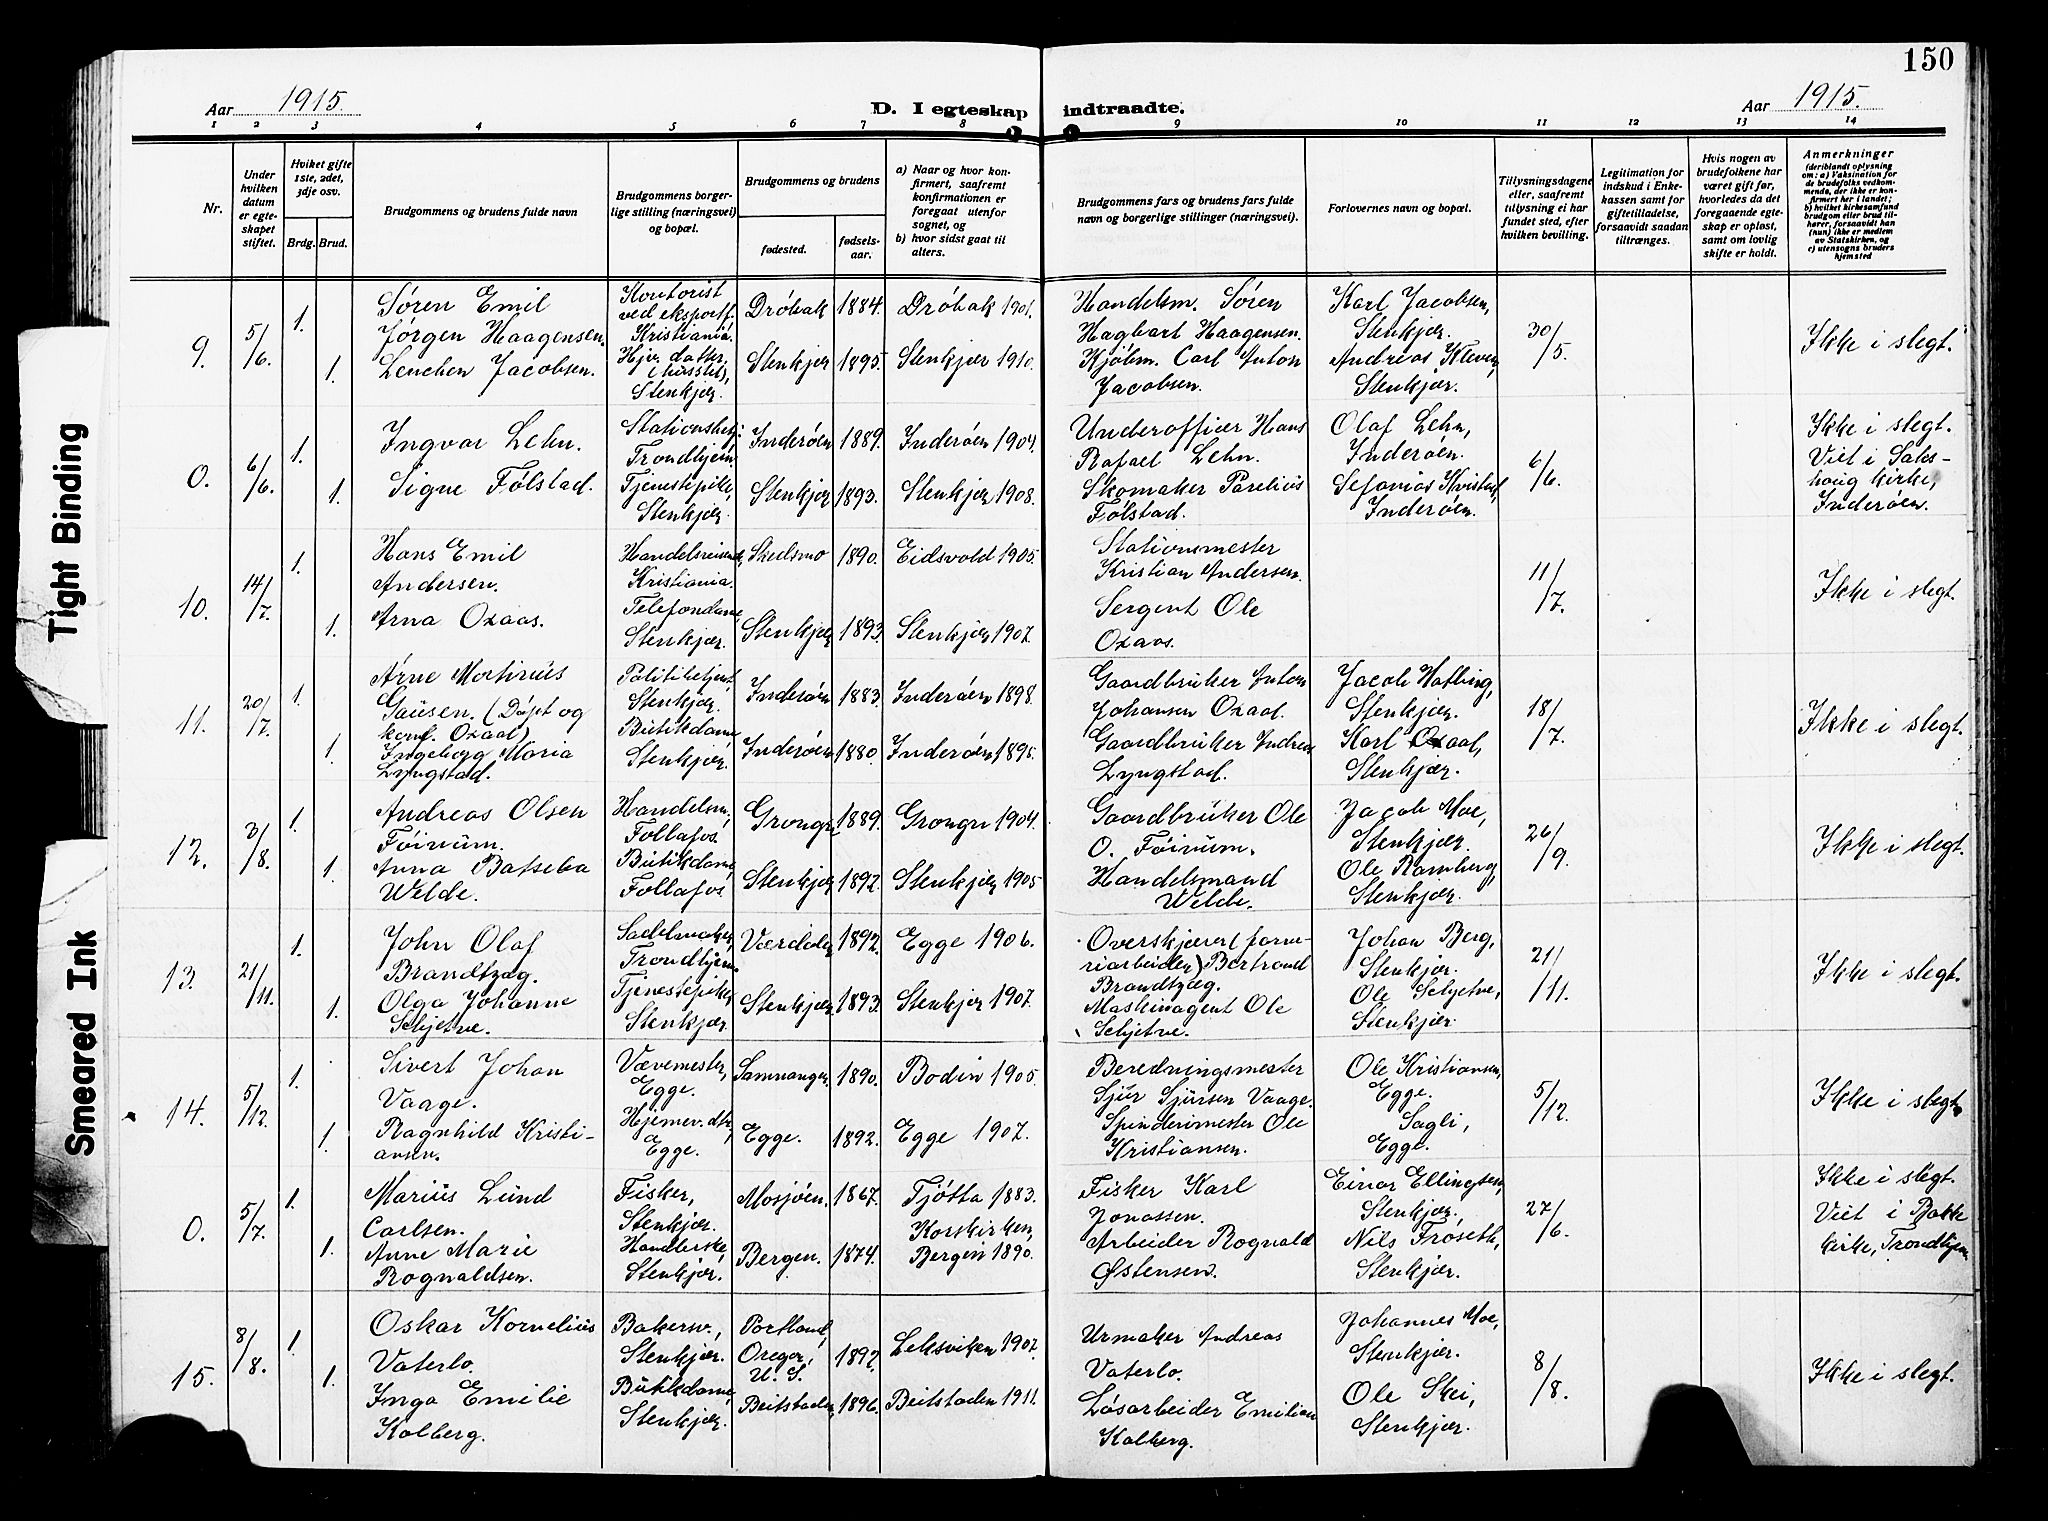 150
Aar 1915.
D. I egteskap indtraadte.
Aar 1915.
1 2 3 4 5 6 7 8 9 10 11 12 13 14
Nr.
Under hvilken datum er egteskapet stiftet.
Hvilket gifte 1ste, 2det, 3dje osv.
Brdg. Brud.
Brudgommens og brudens fulde navn
Brudgommens borgerlige stilling (næringsvei) og bopæl.
Brudgommens og brudens
fødested.
fødselsaar.
a) Naar og hvor konfirmert, saafremt konfirmationen er foregaat utenfor sognet, og
b) hvor sidst gaat til alters.
Brudgommens fars og brudens fars fulde navn og borgerlige stillinger (næringsvei).
Forlovernes navn og bopæl.
Tillysningsdagene eller, saafremt tillysning ei har fundet sted, efter hvilken bevilling.
Legitimation for indskud i Enkekassen samt for giftetilladelse, forsaavidt saadan tiltrænges.
Hvis nogen av brudefolkene har været gift før, hvorledes da det foregaaende egteskap er opløst, samt om lovlig skifte er holdt.
Anmerkninger
(deriblandt oplysning om: a) Vaksination for de brudefolks vedkommende, der ikke er konfirmert her i landet; b) hvilket kirkesamfund brudgom eller brud tilhører, forsaavidt han (hun) ikke er medlem av Statskirken, og c) utensogns bruders hjemsted
9. 5/6. 1. Søren Emil Jørgen Haagensen. Kontorist ved eksportf. Kristiania. Drøbak 1884. Drøbak 1901. Handelsm. Søren Hagbart Haagensen. Karl Jacobsen, Stenkjær. 30/5. Ikke i slegt.
1. Lenchen Jacobsen. Hjv. datter, (i husstel), Stenkjær. Stenkjær 1895. Stenkjær 1910. Hjølm. Carl Anton Jacobsen. Andreas Kleven, Stenkjær.
0. 6/6. 1. Ingvar Lehn. Stationsbetj. Trondhjem. Inderøen 1889. Inderøen 1904. Underofficer Hans Rafael Lehn. Olaf Lehn, Inderøen. 6/6. Ikke i slegt. Viet i Sakshoug kirke, Inderøen.
1. Signe Følstad. Tjenestepike, Stenkjær. Stenkjær 1893. Stenkjær 1908. Skomaker Parelius Følstad. Sefanias Kvistad, Inderøen.
10. 14/7. 1. Hans Emil Andersen. Handelsreisende, Kristiania. Skedsmo 1890. Eidsvold 1905. Stationsmester Kristian Andersen. 11/7. Ikke i slegt.
1. Arna Oxaas. Telefondame, Stenkjær. Stenkjær 1893. Stenkjær 1907. Sergent Ole Oxaas.
11. 20/7. 1. Arne Martinus Gausen. (Døpt og konf. Oxaal) Politibetjent, Stenkjær. Inderøen 1883. Inderøen 1898. Gaardbruker Anton Johansen Oxaal. Jacob Hatling, Stenkjær. 18/7. Ikke i slegt.
1. Ingeborg Maria Lyngstad. Butikdame, Stenkjær. Inderøen 1880. Inderøen 1895. Gaardbruker Andreas Lyngstad. Karl Oxaal, Stenkjær.
12. 3/8. 1. Andreas Olsen Føinum. Handelsm., Follafos. Grong 1889. Grong 1904. Gaardbruker Ole O. Føinum. Jacob Moe, Stenkjær. 26/9. Ikke i slegt.
1. Anna Batseba Welde. Butikdame, Follafos. Stenkjær 1892. Stenkjær 1905 Handelsmand Welde. Ole Ramberg, Stenkjær.
13. 21/11. 1. John Olaf Brandtzæg. Sadelmaker, Trondhjem. Værdalen 1892. Egge 1906. Overskjærer (garveriarbeider) Bertrand Brandtzæg. Johan Berg, Stenkjær. 21/11. Ikke i slegt.
1. Olga Johanne Schjetne. Tjenestepike, Stenkjær. Stenkjær 1893. Stenkjær 1907. Maskinagent Ole Schjetne. Ole Schjetne, Stenkjær.
14. 5/12. 1. Sivert Johan Vaage. Vævemester, Egge. Samnanger 1890. Bodin 1905. Beredningsmester Sjur Sjursen Vaage. Ole Kristiansen, Egge. 5/12. Ikke i slegt.
1. Ragnhild Kristiansen. Hjemev. dtr., Egge. Egge. 1892. Egge 1907. Spinderimester Ole Kristiansen. Sagli, Egge.
0. 5/7. 1. Marius Lund Carlsen. Fisker, Stenkjær. Mosjøen. 1867. Tjøtta 1883. Fisker Karl Jonassen. Einar Ellingsen, Stenkjær. 27/6. Ikke i slegt. Viet i Bakke kirke, Trondhjem
1. Anne Marie Rognaldsen. Handlerske, Stenkjær. Bergen. 1874. Korskirken, Bergen 1890. Arbeider Rognald Østensen. Nils Frøseth, Stenkjær.
15. 8/8. 1. Oskar Kornelius Vaterlo. Bakersv., Stenkjær. Portland, Oregon, U. S. 1892. Leksviken 1907. Urmaker Andreas Vaterlo. Johannes Moe, Stenkjær. 8/8. Ikke i slegt.
1. Inga Emilie Kolberg. Butikdame, Stenkjær. Beitstaden 1896. Beitstaden 1911. Løsarbeider Emilian Kolberg. Ole Skei, Stenkjær.
Tight Binding
Smeared Ink